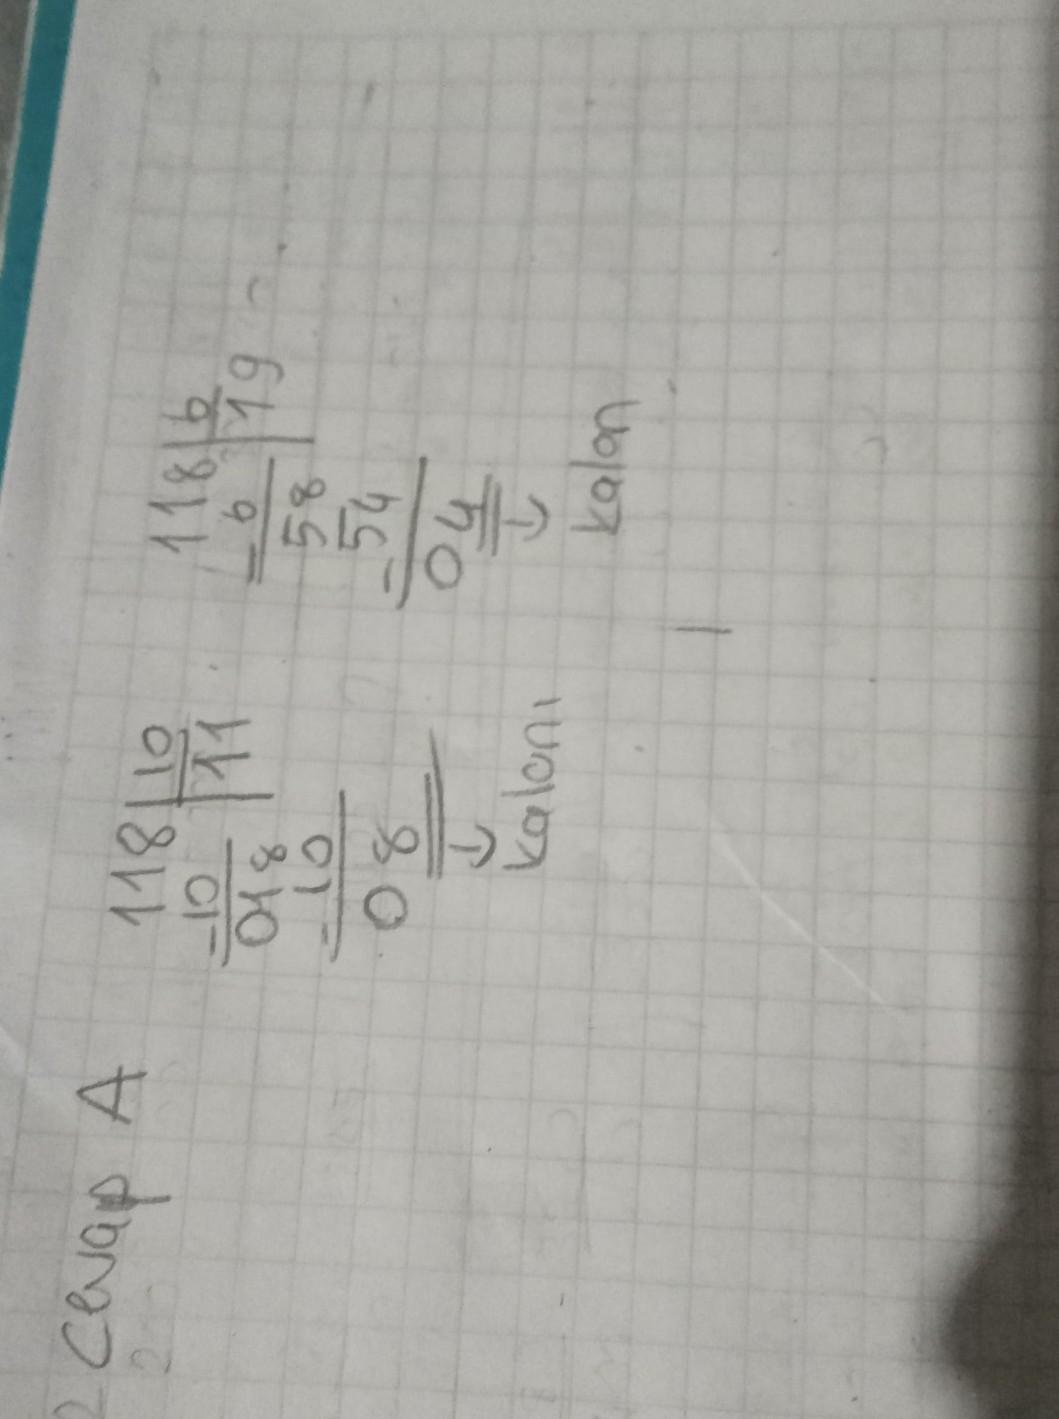 2 Cevap A
118 | 10
-10 | 11
018
-10
08
↓
kalanı
118 | 6
-6 | 19
58
-54
04
↓
kalan